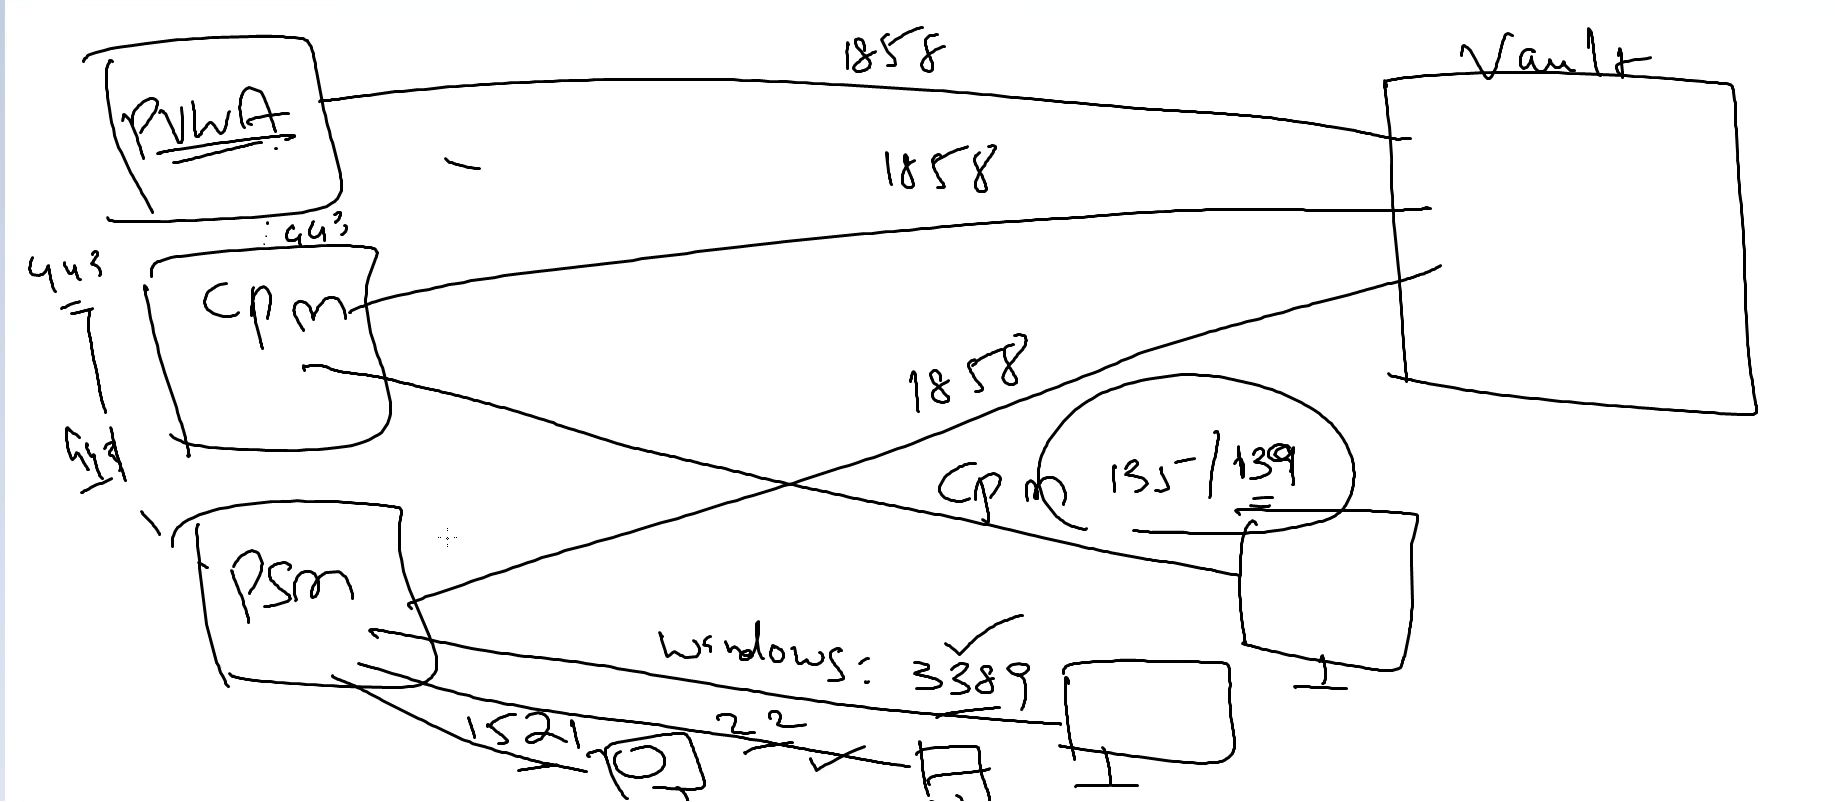 1858
Vault
PVWA
1858
443
443
cpm
1858
443
cpm 135/139
PSM
Windows: 3389
1521
22